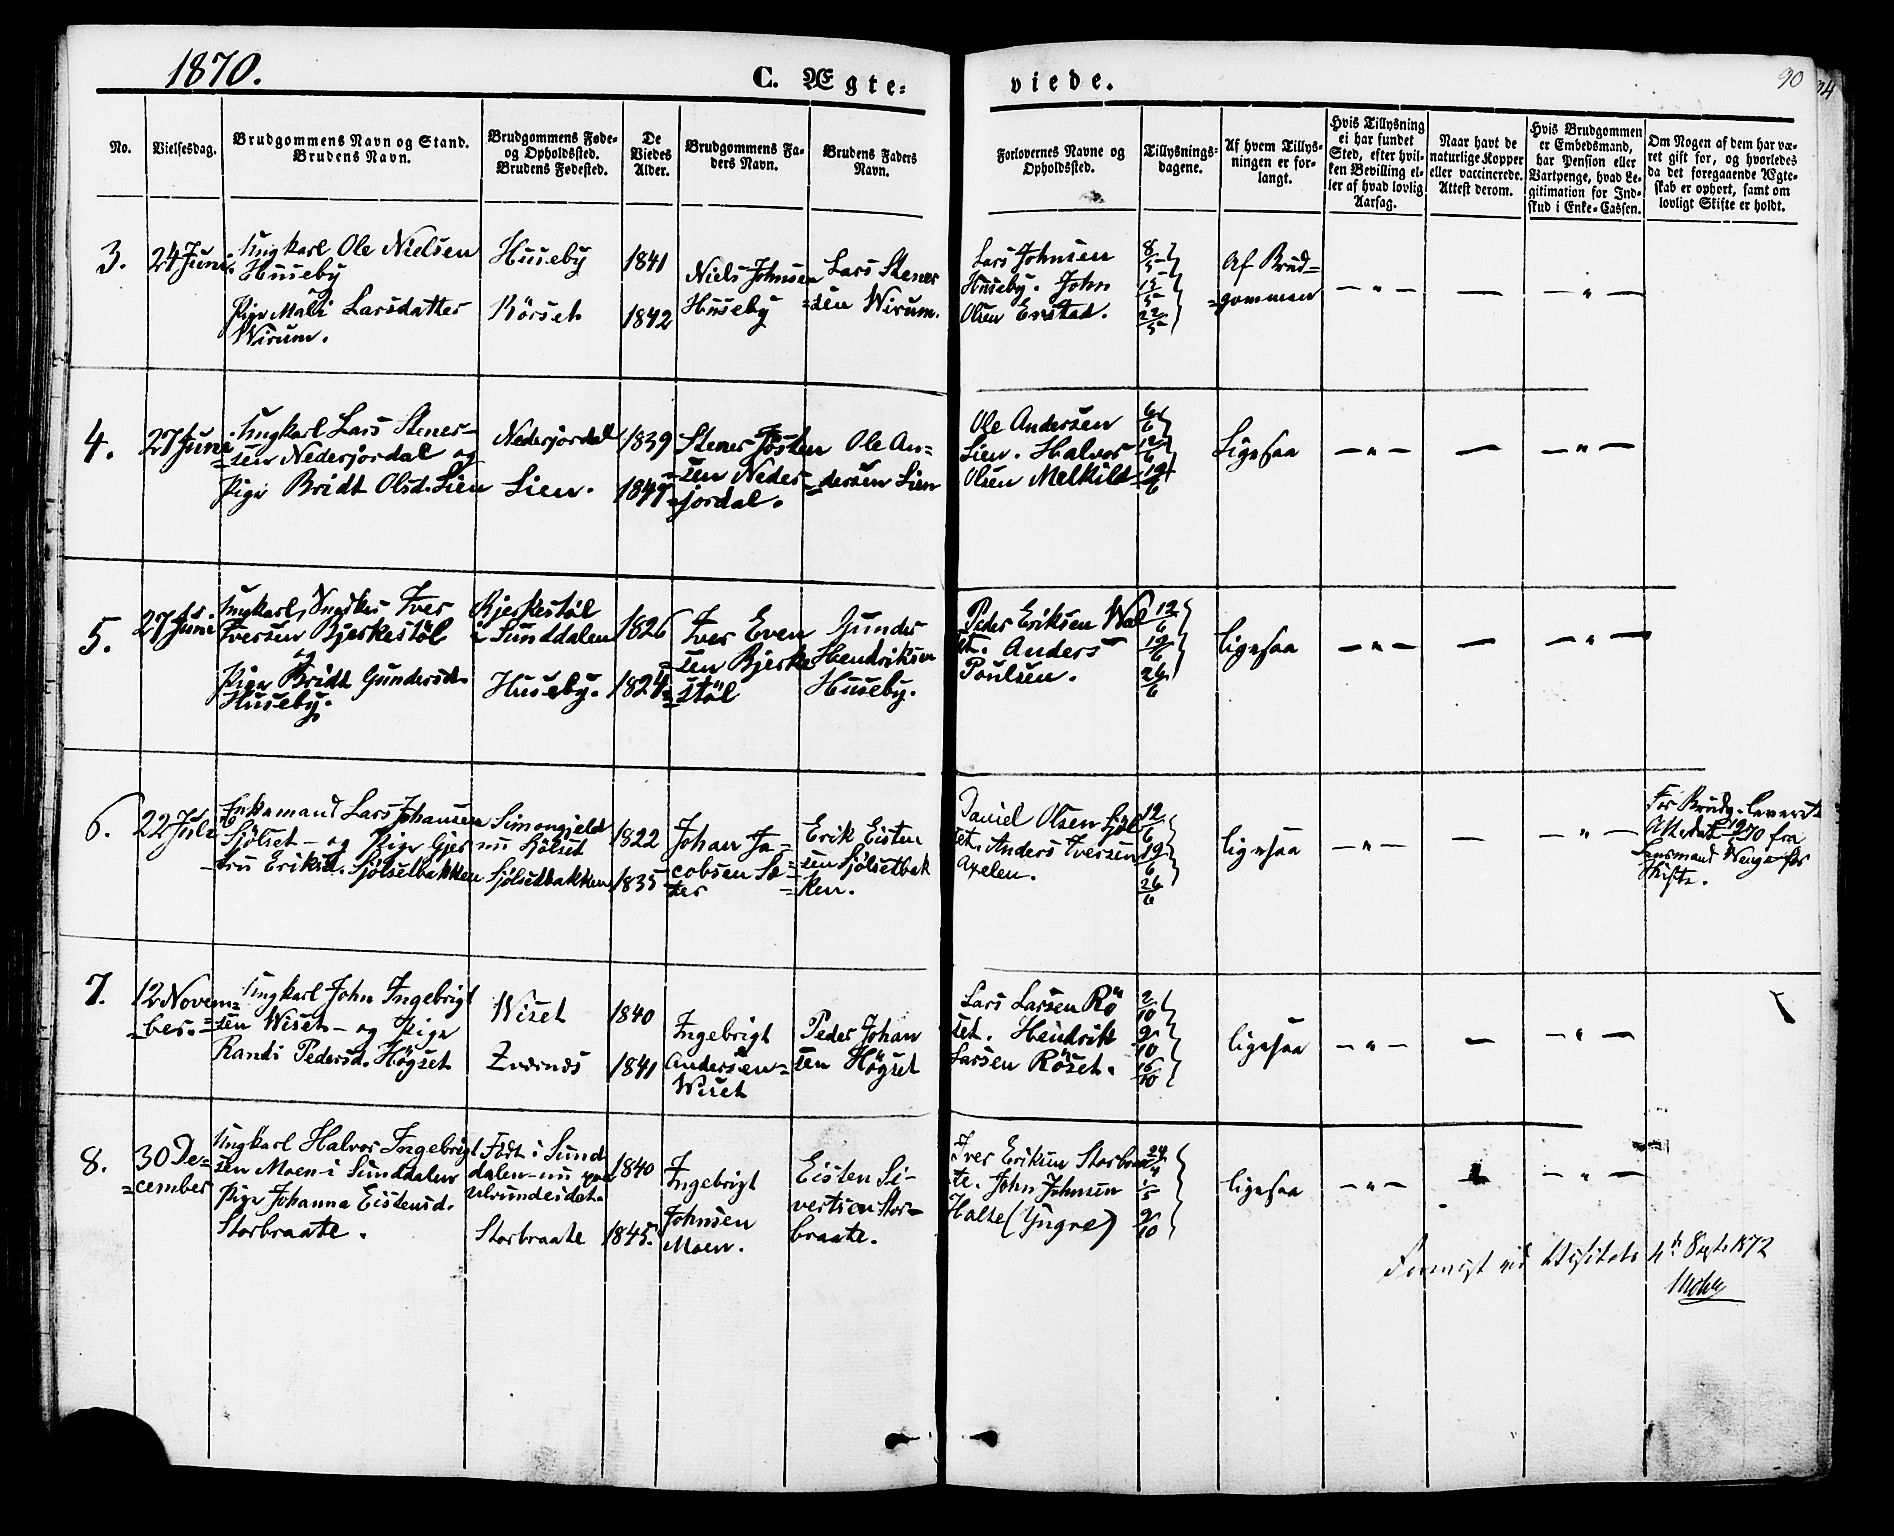 1870.
C. Ægte-
viede.
90
No.
Vielsesdag.
Brudgommens Navn og Stand.
Brudens Navn.
Brudgommens Føde-
og Opholdsted.
Brudens Fødested.
De
Viedes
Alder.
Brudgommens Fa-
ders Navn.
Brudens Faders
Navn.
Forlovernes Navne og
Opholdssted.
Tillysnings-
dagene.
Af hvem Tillys-
ningen er for-
langt.
Hvis Tillysning
ei har fundet
Sted, efter hvil-
ken Bevilling el-
ler af hvad lovlig
Aarsag.
Naar havt de
naturlige Kopper
eller vaccinerede.
Attest derom.
Hvis Brudgommen
er Embedsmand,
har Pension eller
Vartpenge, hvad Le-
gitimation for Ind-
skud i Enke-Cassen.
Om Nogen af dem har væ-
ret gift før, og hvorledes
da det foregaaende Ægte-
skab er ophørt, samt om
lovligt Skifte er holdt.
3.
24 Juni.
Ungkarl Ole Nielsen
Huseby
og
Pige Mali Larsdatter
Wirum.
Huseby
Rörset
1841
1842
Niels Johnsen
Huseby
Lars Stener
=sen Wirum.
Lars Johnsen
Huseby. John
Olsen Erstad.
8/5
15/5
22/5
Af Brud=
=gommen
— " —
—
— " —
4.
27 Juni
Ungkarl Lars Stener-
=sen Nederjordal og
Pige Bridt Olsd. Lien
Nederjordal
Lien.
1839
1847
Stener Josten
=sen Neder=
=jordal.
Ole An-
=dersen Lien
Ole Andersen
Lien. Halvor
Olsen Melkild
6/6
12/6
19/6
Ligesaa
— " —
—
— " —
5.
27 Juni
Ungkarl, Iver
Iversen Bjerkestöl
og
Pige Bridt Gundersd.
Huseby.
Bjerkestöl
i Sunddalen
Huseby.
1826
1824
Iver Even
=sen Bjerke
=stöl
Gunder
Hendriksen
Huseby.
Peder Eriksen Wal
set. Anders
Poulsen.
12/6
19/6
26/6
ligesaa
— " —
—
— " —
6.
22 Juli
Enkemand Lars Johansen
Sjölset — og Pige Gjer
=tru Eriksd. Sjölsetbakken
Sjölsetbakken
1822
1835
Johan Ja-
cobsen Sæ=
ter
Erik Eisten
=sen Sjölsetbak
=ken.
Daniel Olsen Sjöl
set. Anders Iversen
Axelen.
12/6
19/6
26/6
ligesaa
— " —
—
— " —
For Brudg. leveret
Attest 12/70 fra
Lensmand
Skifte.
7.
12 Novem=
=ber.
Ungkarl John Ingebrigt
=sen Wiset — og Pige
Randi Pedersd. Högset
Wiset
1840
1841
Ingebrigt
Andersen=
Wiset
Peder Johan
sen Högset
Lars Larsen Rö
set. Hendrik
Larsen Röset.
2/10
9/10
16/10
ligesaa
— " —
—
— " —
8.
30 De=
=cember
Ungkarl Halvor Ingebrigt
sen Moen i Sunddalen
Pige Johanna Eistensd.
Storbraate.
Födt i Sund
dalen — nu paa
Storbraate
1840
1845.
Ingebrigt
Johnsen
Moen.
Eisten Si-
vertsen Stor=
braate.
Iver Eriksen Storbraa
te. John Johnsen
Halse (Yngre)
24/4
1/5
9/10
ligesaa
— " —
— " —
Visitats 4de Septr 1872